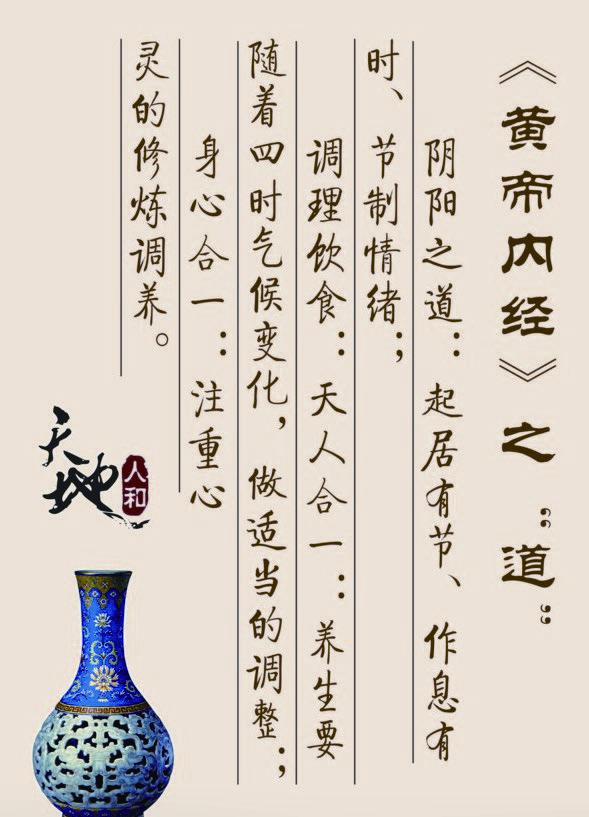 《黄帝内经》之“道”
阴阳之道：起居有节、作息有
时、节制情绪；
调理饮食：天人合一：养生要
随着四时气候变化，做适当的调整；
身心合一：注重心
灵的修炼调养。
天地
人和